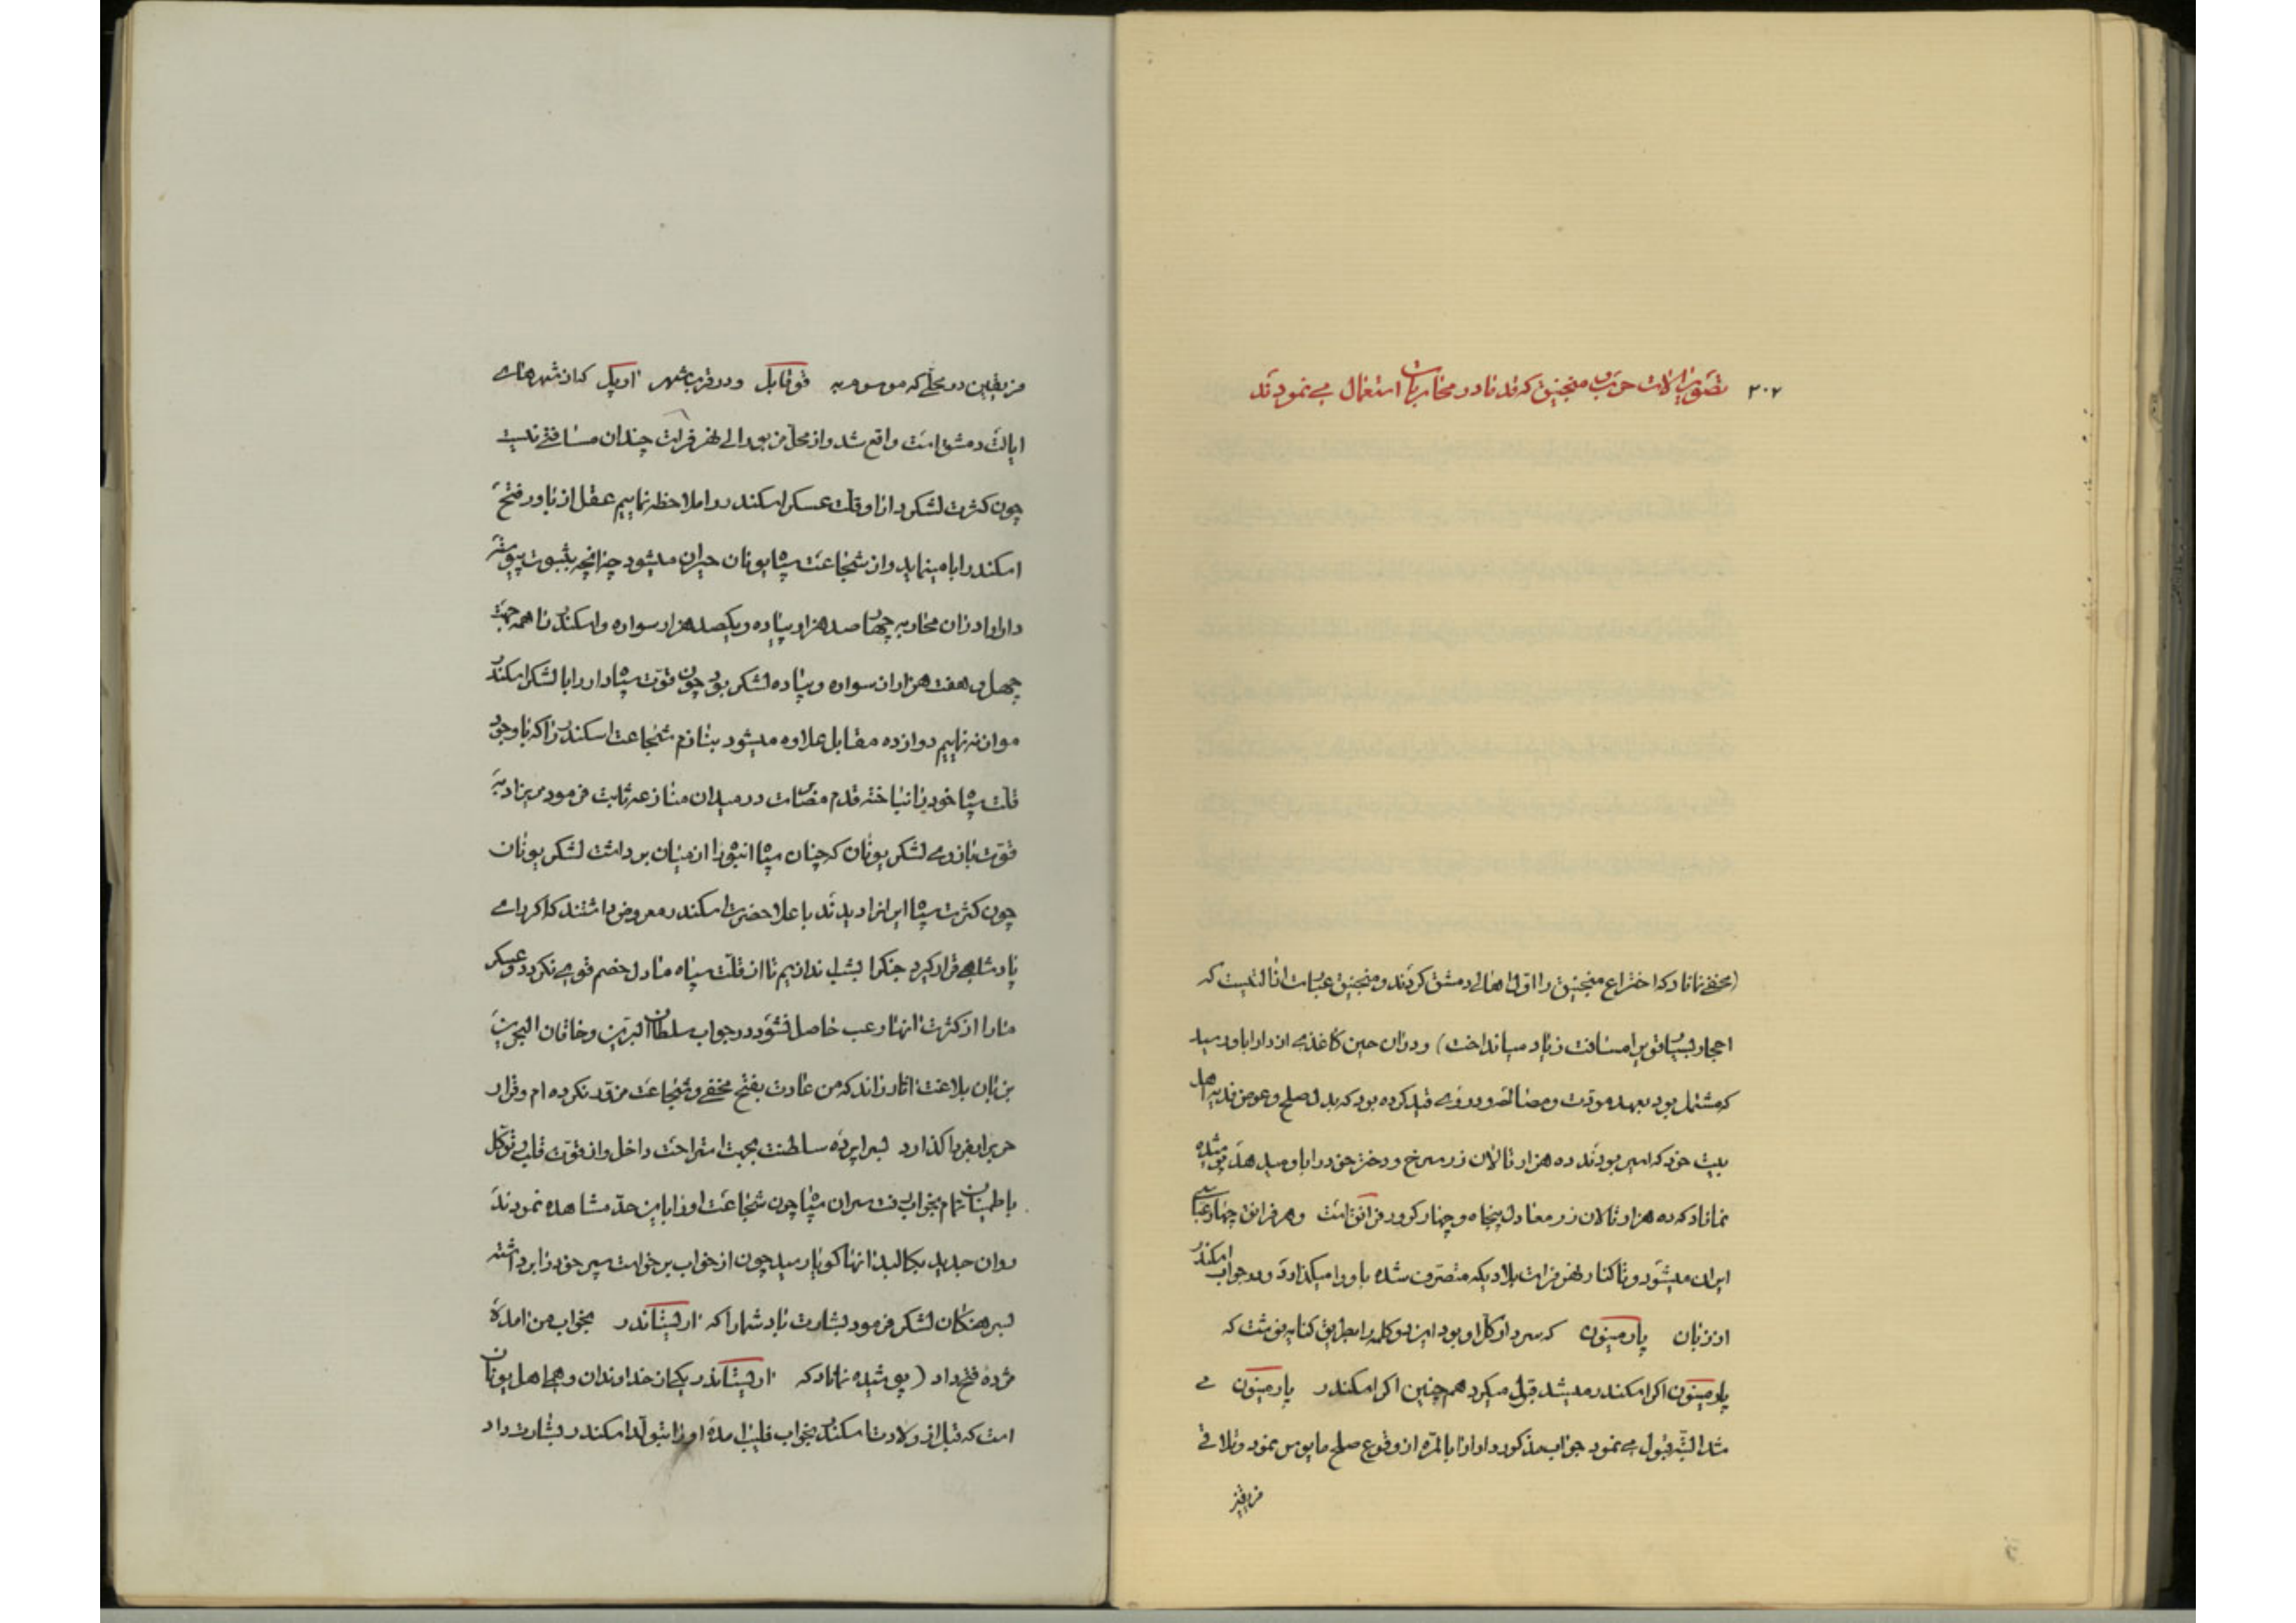 ۲۰۷ تصویر آلات حرب و منجنیق که قدما در محاربات استعمال می نمودند
(مخفی نماناد که اختراع منجنیق را اول اهالی دمشق کردند و منجنیق عبارت از آلتیست که
احجار بسیار قویرا مسافت زیاد میانداخت) و در ان حین کاغذی از دارا باو رسید
که مشتمل بود بعهد مودت و مصالحه و دروی قید کرده بود که بدل صلح و عوض فدیه اهل
بیت خود که اسیر بودند ده هزار تالان زر سرخ و دختر خود را باو میدهد پوشیده
نماناد که ده هزار تالان زر معادل پنجاه و چهار کرور فرانق است و هر فرانق چهار عباسی
ایران میشود و تا کنار نهر فرات بلادیکه متصرف شده باو وا میگذارد و در جواب اسکندر
از زبان پارمینون که سردار کل او بود این دو کلمه را بطریق کنایه نوشت که
پارمینون اگر اسکندر میشد قبول میکرد همچنین اگر اسکندر پارمینون می
شد البته قبول می نمود جواب مذکور دارا را بالمره از وقوع صلح مایوس نمود و تلاقی
فریقین
فریقین در محلی که موسوم به قوناپل و در قرب شهر اوپل که از شهرهای
ایالت دمشق است واقع شد و از محل مزبور الی نهر فرات چندان مسافتی نیست
چون کثرت لشکر دارا و قلت عسکر اسکندر را ملاحظه نماییم عقل از باور فتح
اسکندر ابا مینماید و از شجاعت سپاه یونان حیران میشود چنانچه بثبوت پیوسته
دارا را در ان محاربه چهار صد هزار پیاده و یکصد هزار سواره و اسکندر را همه جهت
چهل و هفت هزار از سواره و پیاده لشکر بود چون قوت سپاه دارا را با لشکر اسکندر
موازنه نماییم دوازده مقابل علاوه میشود بنازم شجاعت اسکندر را که با وجود
قلت سپاه خود را نباخته قدم در میدان منازعه ثابت فرمود مریزاد به
قوت بازوی لشکر یونان که چنان سپاه انبوه را از میان برداشت لشکر یونان
چون کثرت سپاه ایرانرا دیدند باعلاحضرت اسکندر معروض داشتند که اگر رای
پادشاهی قرار گیرد جنگرا بشب اندازیم تا از قلت سپاه ما دل خصم قوی نگردد و عسکر
ما را از کثرت انها رعب حاصل نشود در جواب سلطان البرین و خاقان البحرین
بزبان بلاغت اثار راند که من عادت بفتح مخفی و شجاعت نکرده ام و قرار
حربرا بفردا گذارد بسراپرده سلطنت بجهت استراحت داخل و از قوت قلب و توکل
باطمینان تمام بخواب رفت سران سپاه چون شجاعت او را باین حد مشاهده نمودند
روان جدید بکالبد انها گویا رسید چون از خواب برخواست سپر خود را برداشته
بسرهنگان لشکر فرمود بشارت باد شما را که بخواب من امده
مژده فتح داد (پوشیده نماناد که یکی از خداوندان وهمی اهل یونان
است که قبل از ولادت اسکندر بخواب فلیپ امده او را بتولد اسکندر بشارت داد